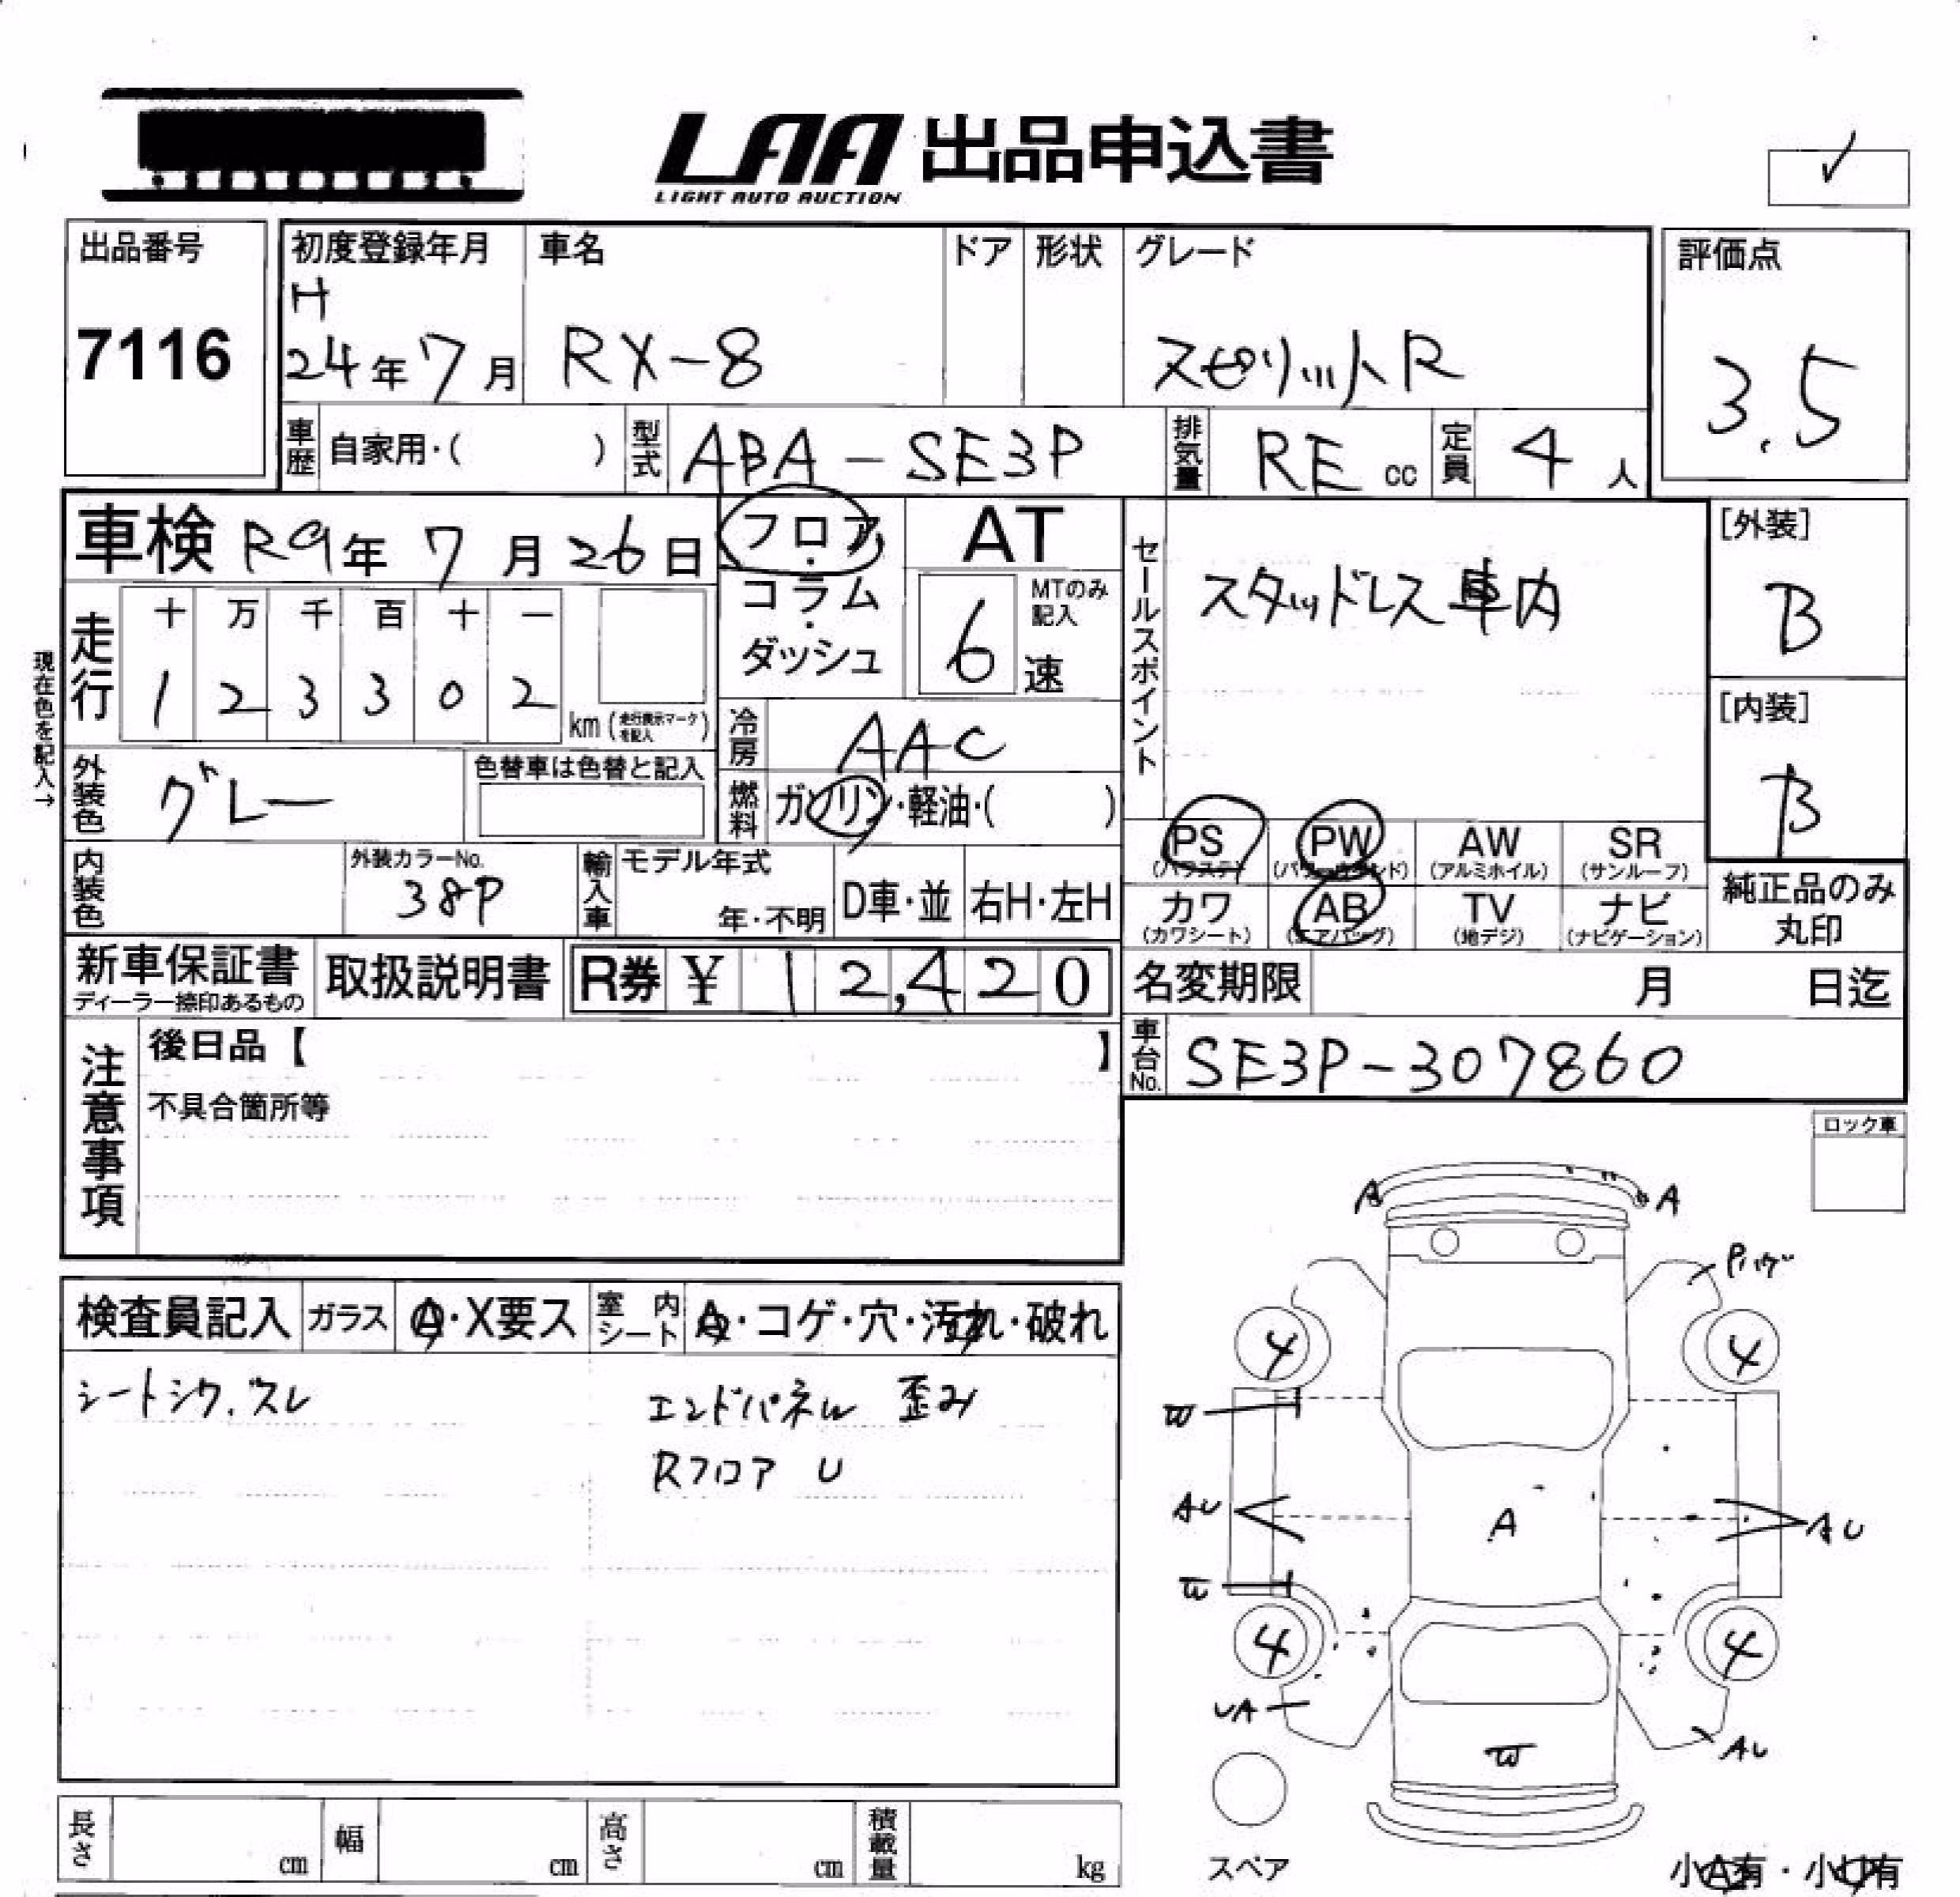 LAA 出品申込書
LIGHT AUTO AUCTION
出品番号
7116
初度登録年月
H
24年 7月
車名
RX-8
ドア
形状
グレード
スピリットR
評価点
3.5
車歴
自家用・( )
型式
ABA-SE3P
排気量
RE cc
定員
4 人
車検 R9年 7月 26日
フロア
・
コラム
・
ダッシュ
AT
MTのみ
記入
6 速
セールスポイント
スタッドレス車内
[外装]
B
[内装]
B
現在色を記入→
走行
十 万 千 百 十 一
1 2 3 3 0 2
km (走行表示マークを記入)
冷房
AAC
外装色
グレー
色替車は色替と記入
燃料
ガソリン・軽油・( )
PS
(パワステ)
PW
(パワーウインド)
AW
(アルミホイル)
SR
(サンルーフ)
内装色
外装カラーNo.
38P
輸入車
モデル年式
年・不明
D車・並
右H・左H
カワ
(カワシート)
AB
(エアバッグ)
TV
(地デジ)
ナビ
(ナビゲーション)
純正品のみ
丸印
新車保証書
ディーラー捺印あるもの
取扱説明書
R券 ¥ 12,420
名変期限
月 日迄
注意事項
後日品【 】
不具合箇所等
車台No.
SE3P-307860
ロック車
検査員記入
ガラス
A・X要ス
室内シート
A・コゲ・穴・汚れ・破れ
シートシワ、スレ
エンドパネル 歪み
Rフロア U
A
A
Pハゲ
4
4
W
AU
A
AU
W
4
4
UA
AU
W
スペア
小A有・小U有
長さ
cm
幅
cm
高さ
cm
積載量
kg